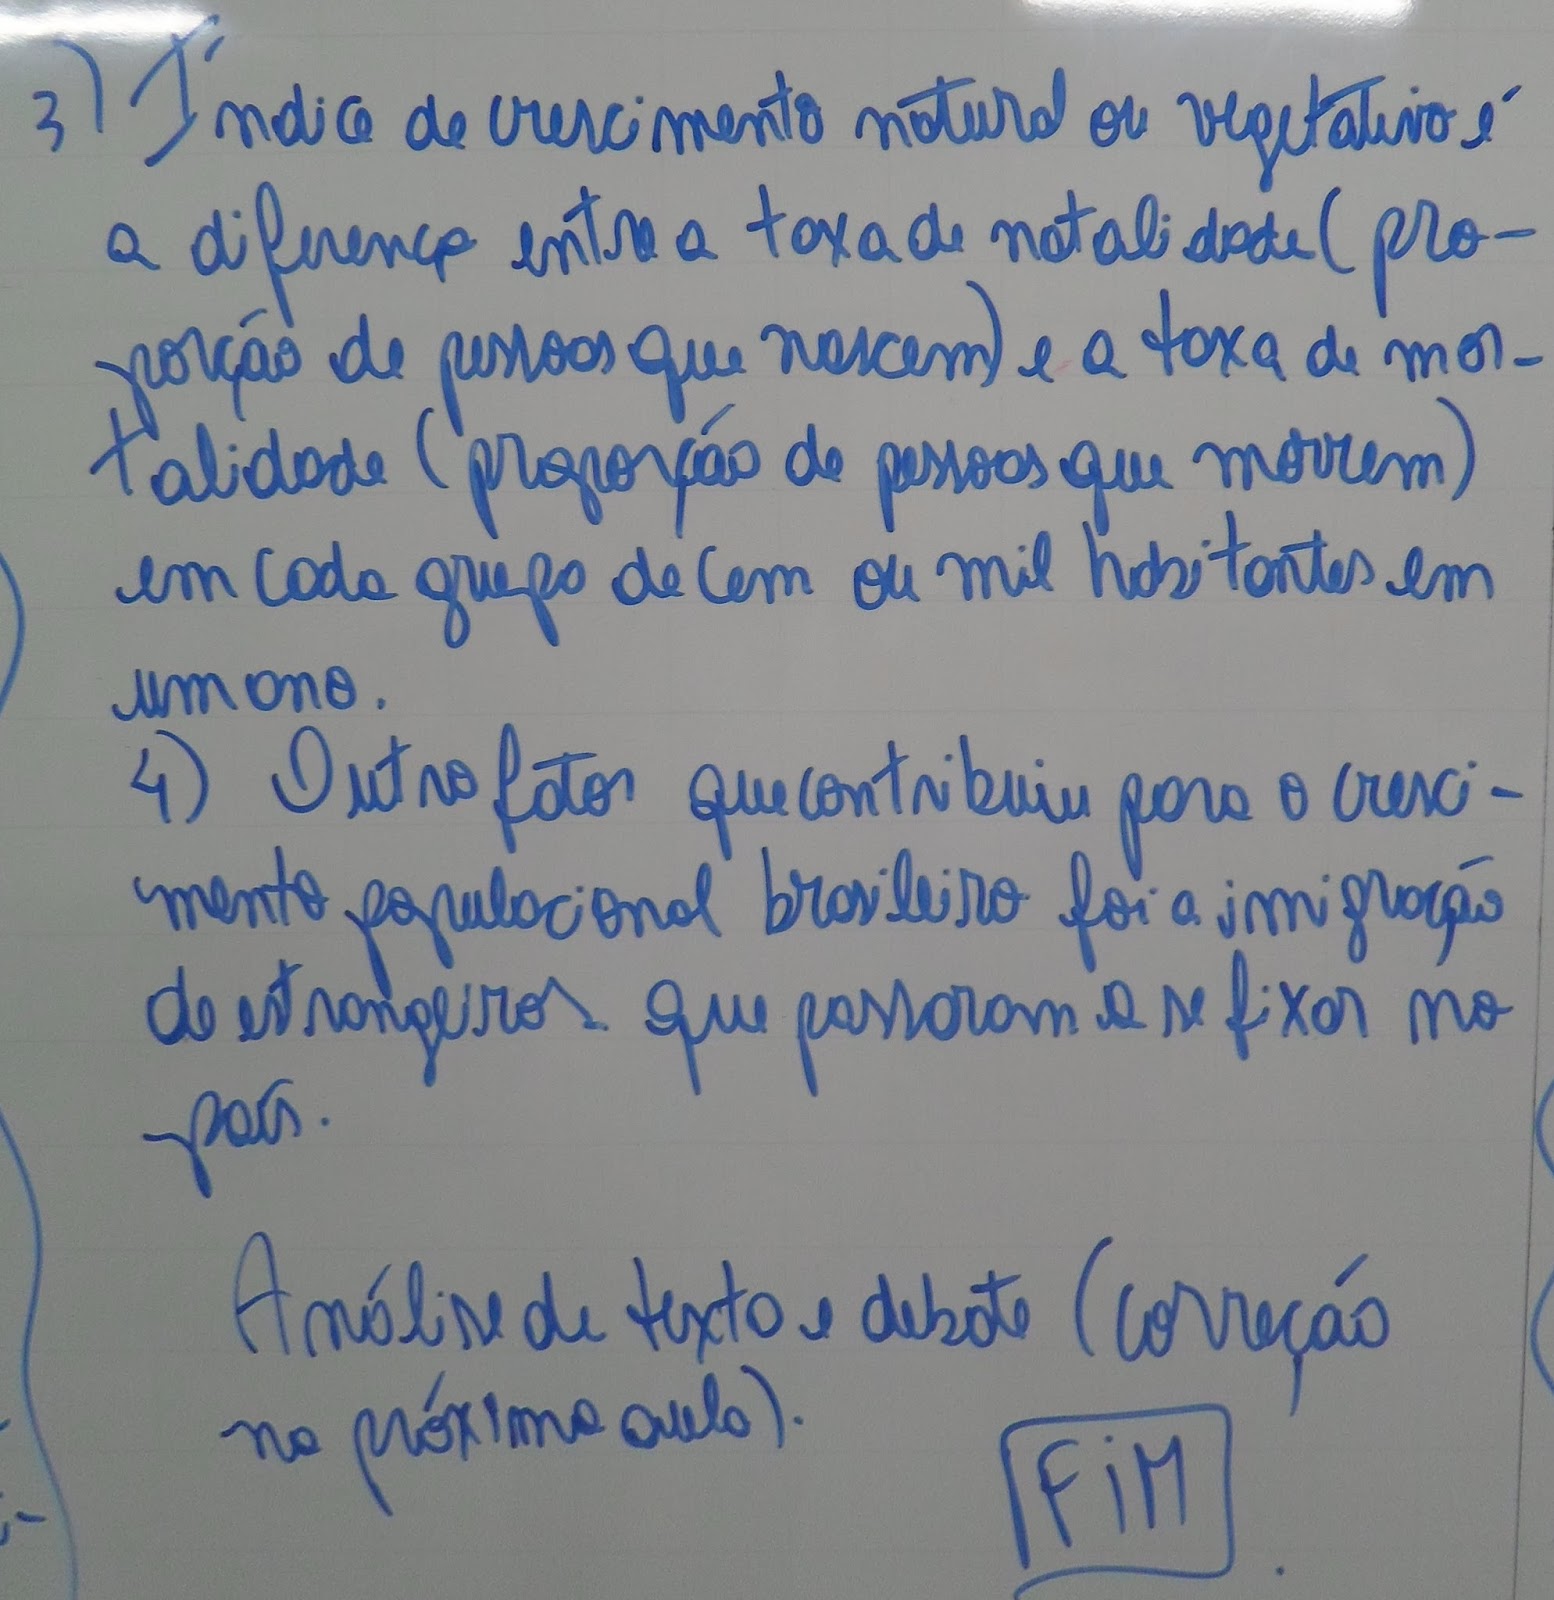 3) Índice de crescimento natural ou vegetativo é
a diferença entre a taxa de natalidade (pro-
porção de pessoas que nascem) e a taxa de mor-
talidade (proporção de pessoas que morrem)
em cada grupo de cem ou mil habitantes em
um ano.
4) Outro fator que contribuiu para o cresci-
mento populacional brasileiro foi a imigração
de estrangeiros que passaram a se fixar no
país.
Análise de texto e debate (correção
na próxima aula).
FiM